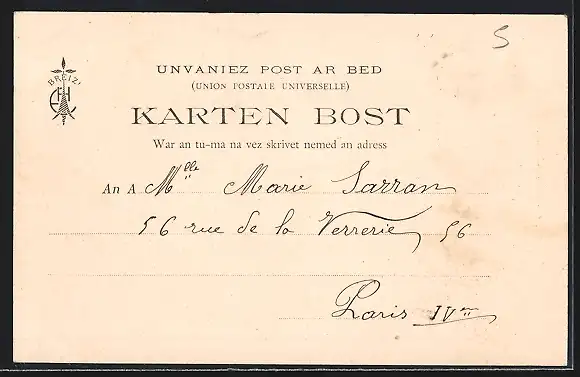 5
BREIZ'
UNVANIEZ POST AR BED
(UNION POSTALE UNIVERSELLE)
KARTEN BOST
War an tu-ma na vez skrivet nemed an adress
An A Mlle Marie Sarran
56 rue de la Verrerie, 56
Paris IVme